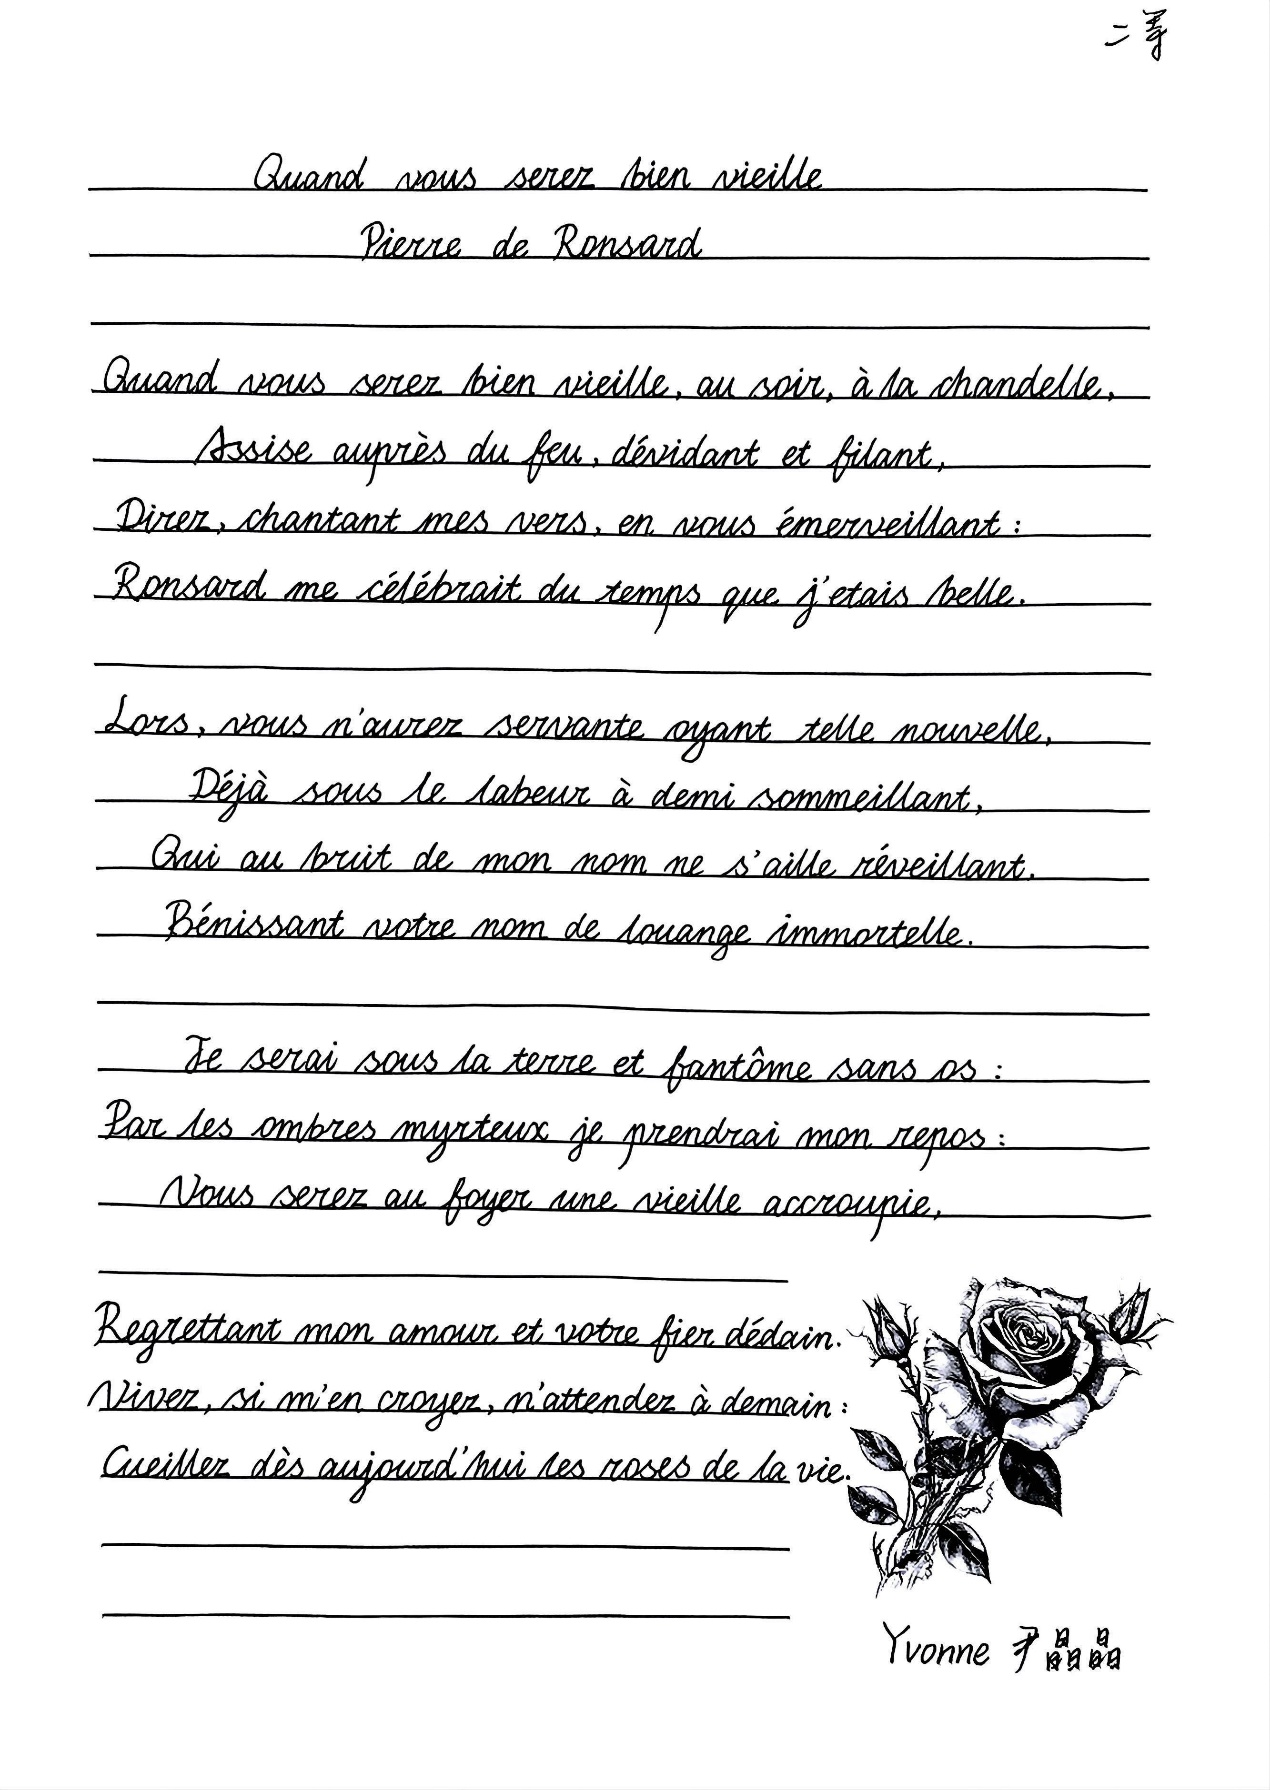 二等
Quand vous serez bien vieille
Pierre de Ronsard
Quand vous serez bien vieille, au soir, à la chandelle,
Assise auprès du feu, dévidant et filant,
Direz, chantant mes vers, en vous émerveillant :
Ronsard me célébrait du temps que j'etais belle.
Lors, vous n'aurez servante oyant telle nouvelle,
Déjà sous le labeur à demi sommeillant,
Qui au bruit de mon nom ne s'aille réveillant.
Bénissant votre nom de louange immortelle.
Je serai sous la terre et fantôme sans os :
Par les ombres myrteux je prendrai mon repos :
Vous serez au foyer une vieille accroupie,
Regrettant mon amour et votre fier dédain.
Vivez, si m'en croyez, n'attendez à demain :
Cueillez dès aujourd'hui les roses de la vie.
Yvonne 尹晶晶